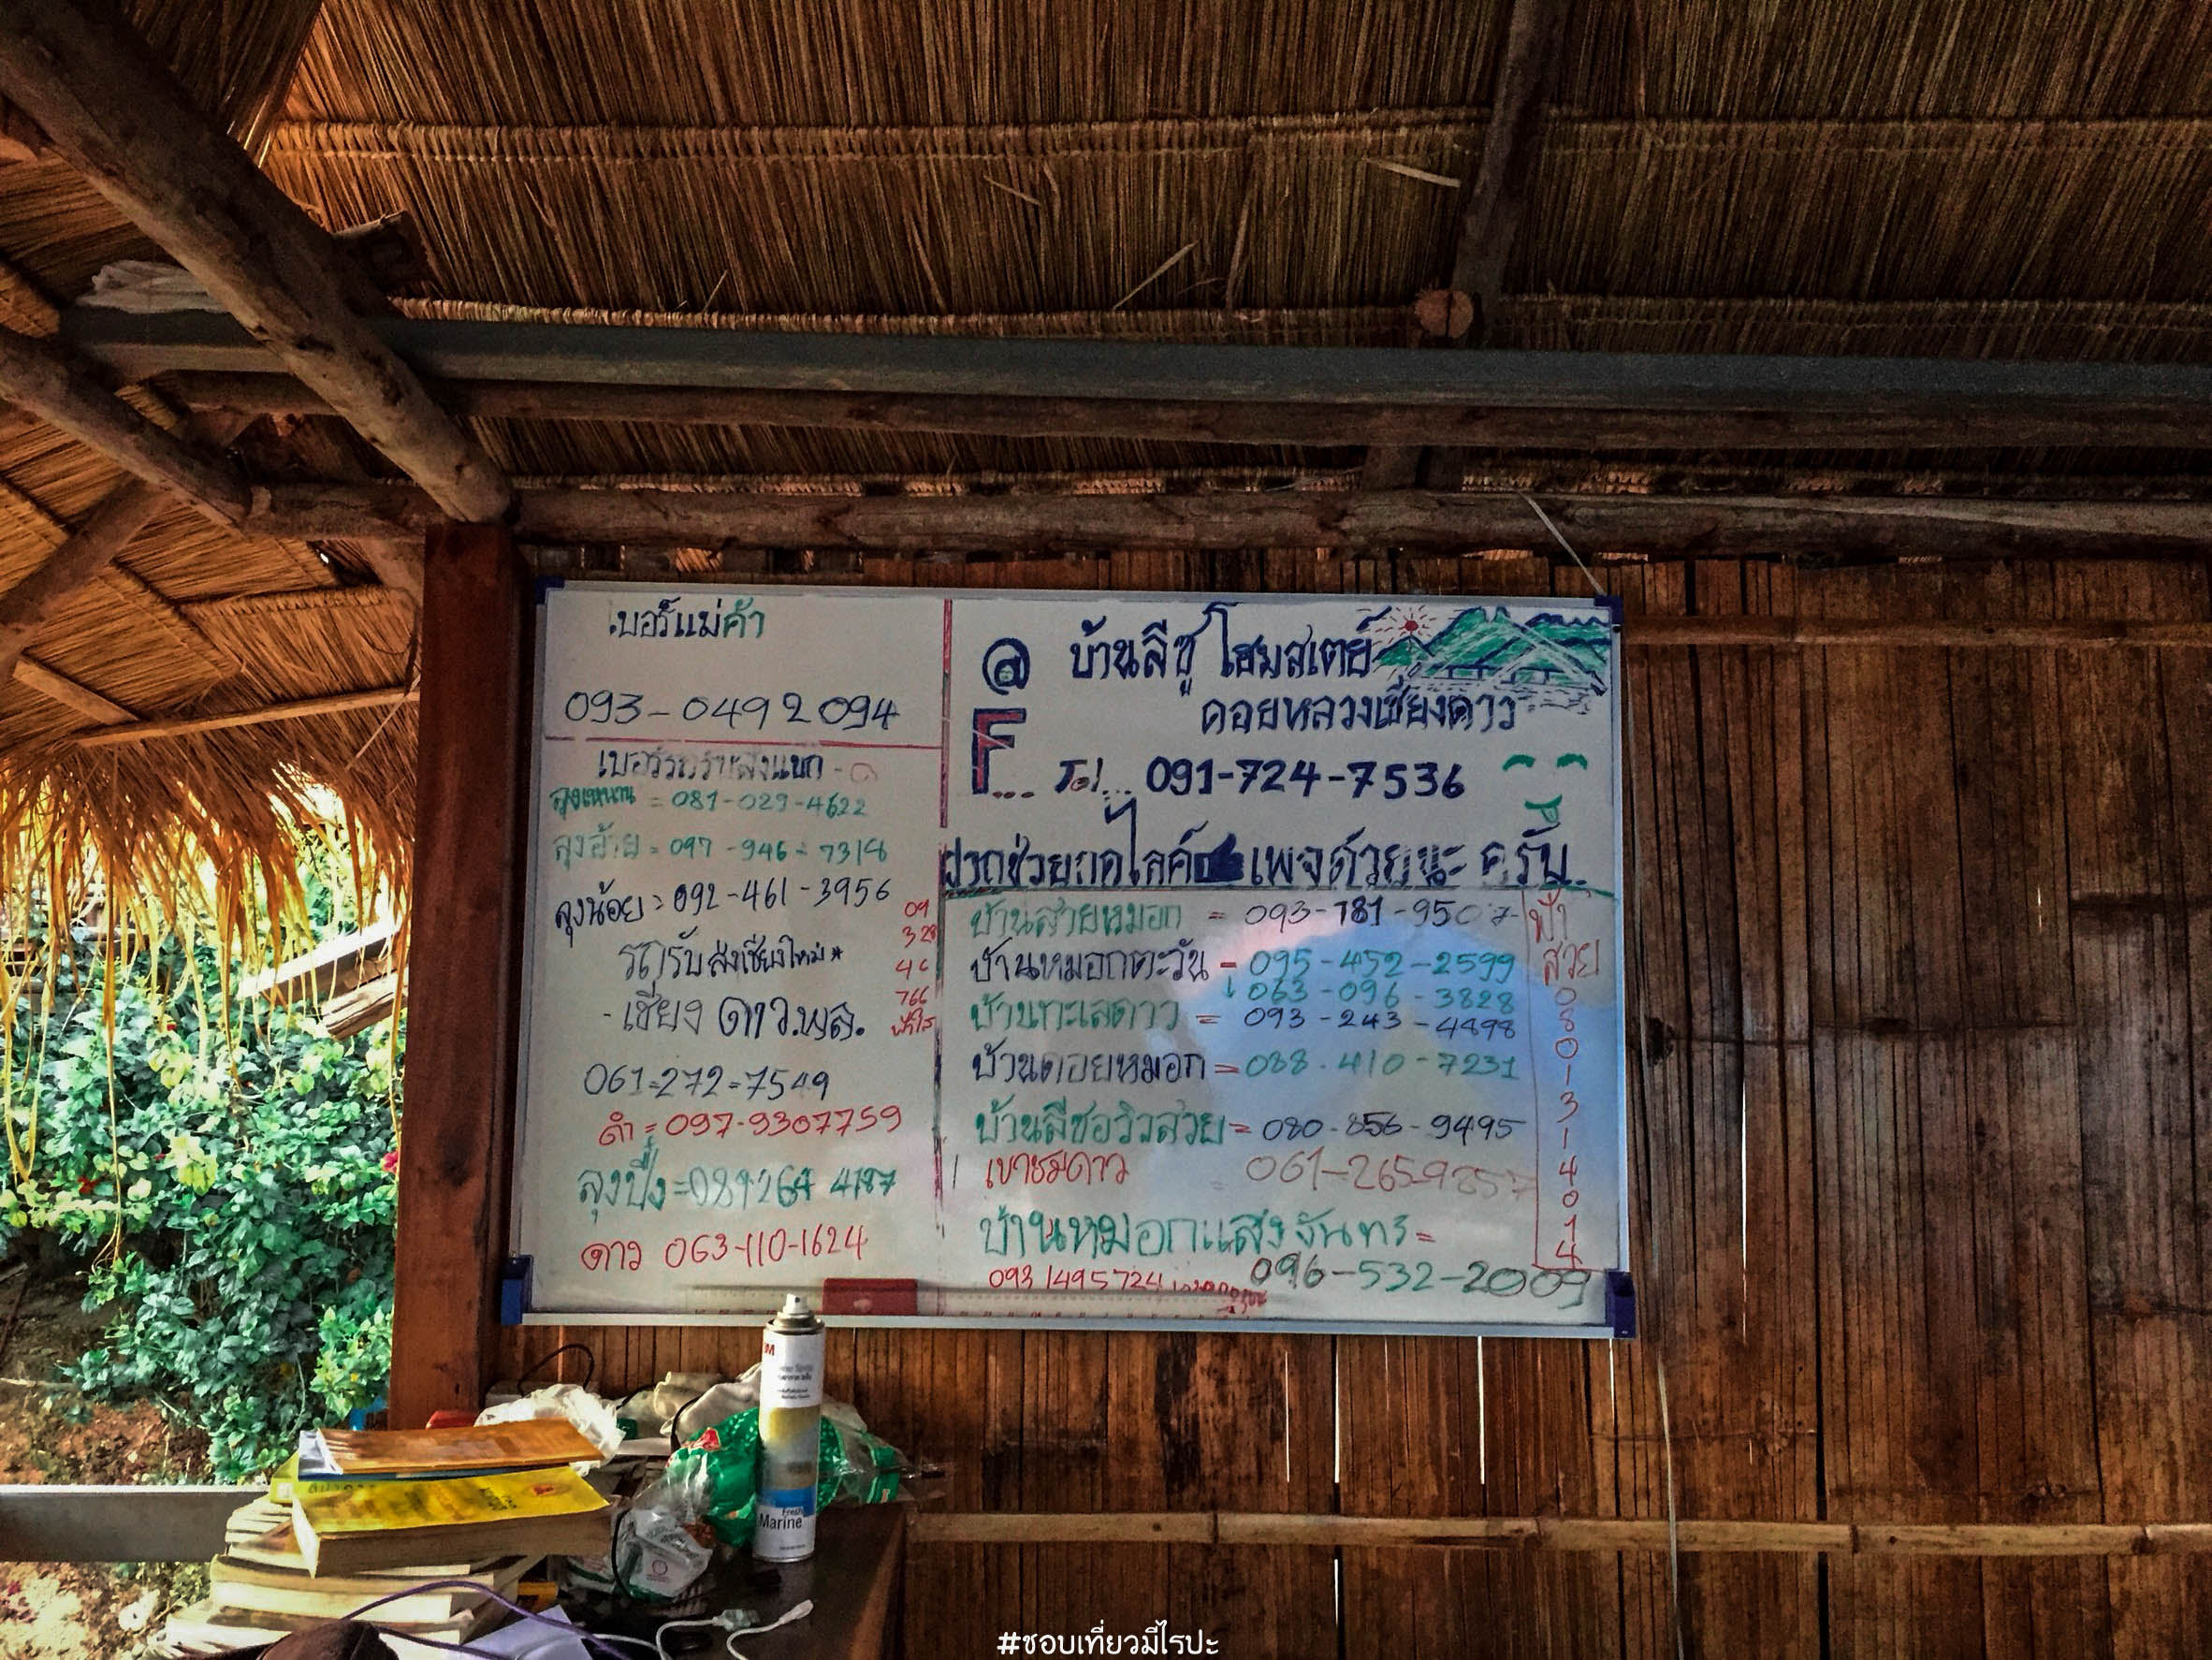 เบอร์แม่ค้า
093-0492094
เบอร์รถรับส่งแขก
ลุงเหนาน = 081-029-4622
ลุงอ้าย = 097-946-7318
ลุงน้อย = 092-461-3956
รถรับส่งเชียงใหม่*
-เชียงดาว.พล.
061-272-7549
ดำ = 097-9307759
ลุงปิ๋ง = 089-264 4187
ดาว 063-110-1624
09
328
766
@ บ้านลีซู โฮมสเตย์
ดอยหลวงเชียงดาว
F... Tel... 091-724-7536
ฝากช่วยกดไลค์ เพจด้วยนะครับ.
บ้านสายหมอก = 093-781-9507
บ้านหมอกตะวัน - 095-452-2599
063-096-3828
บ้านทะเลดาว = 093-243-4898
บ้านดอยหมอก = 088-410-7231
บ้านลีซอวิวสวย = 080-856-9495
เขาชมดาว 061-265-9857
บ้านหมอกแสงจันทร์ =
096-532-2009
093 1495724
ฟ้า
สวย
0
8
0
1
3
1
4
0
1
4
Fresh
Marine
#ชอบเที่ยวมีไรปะ